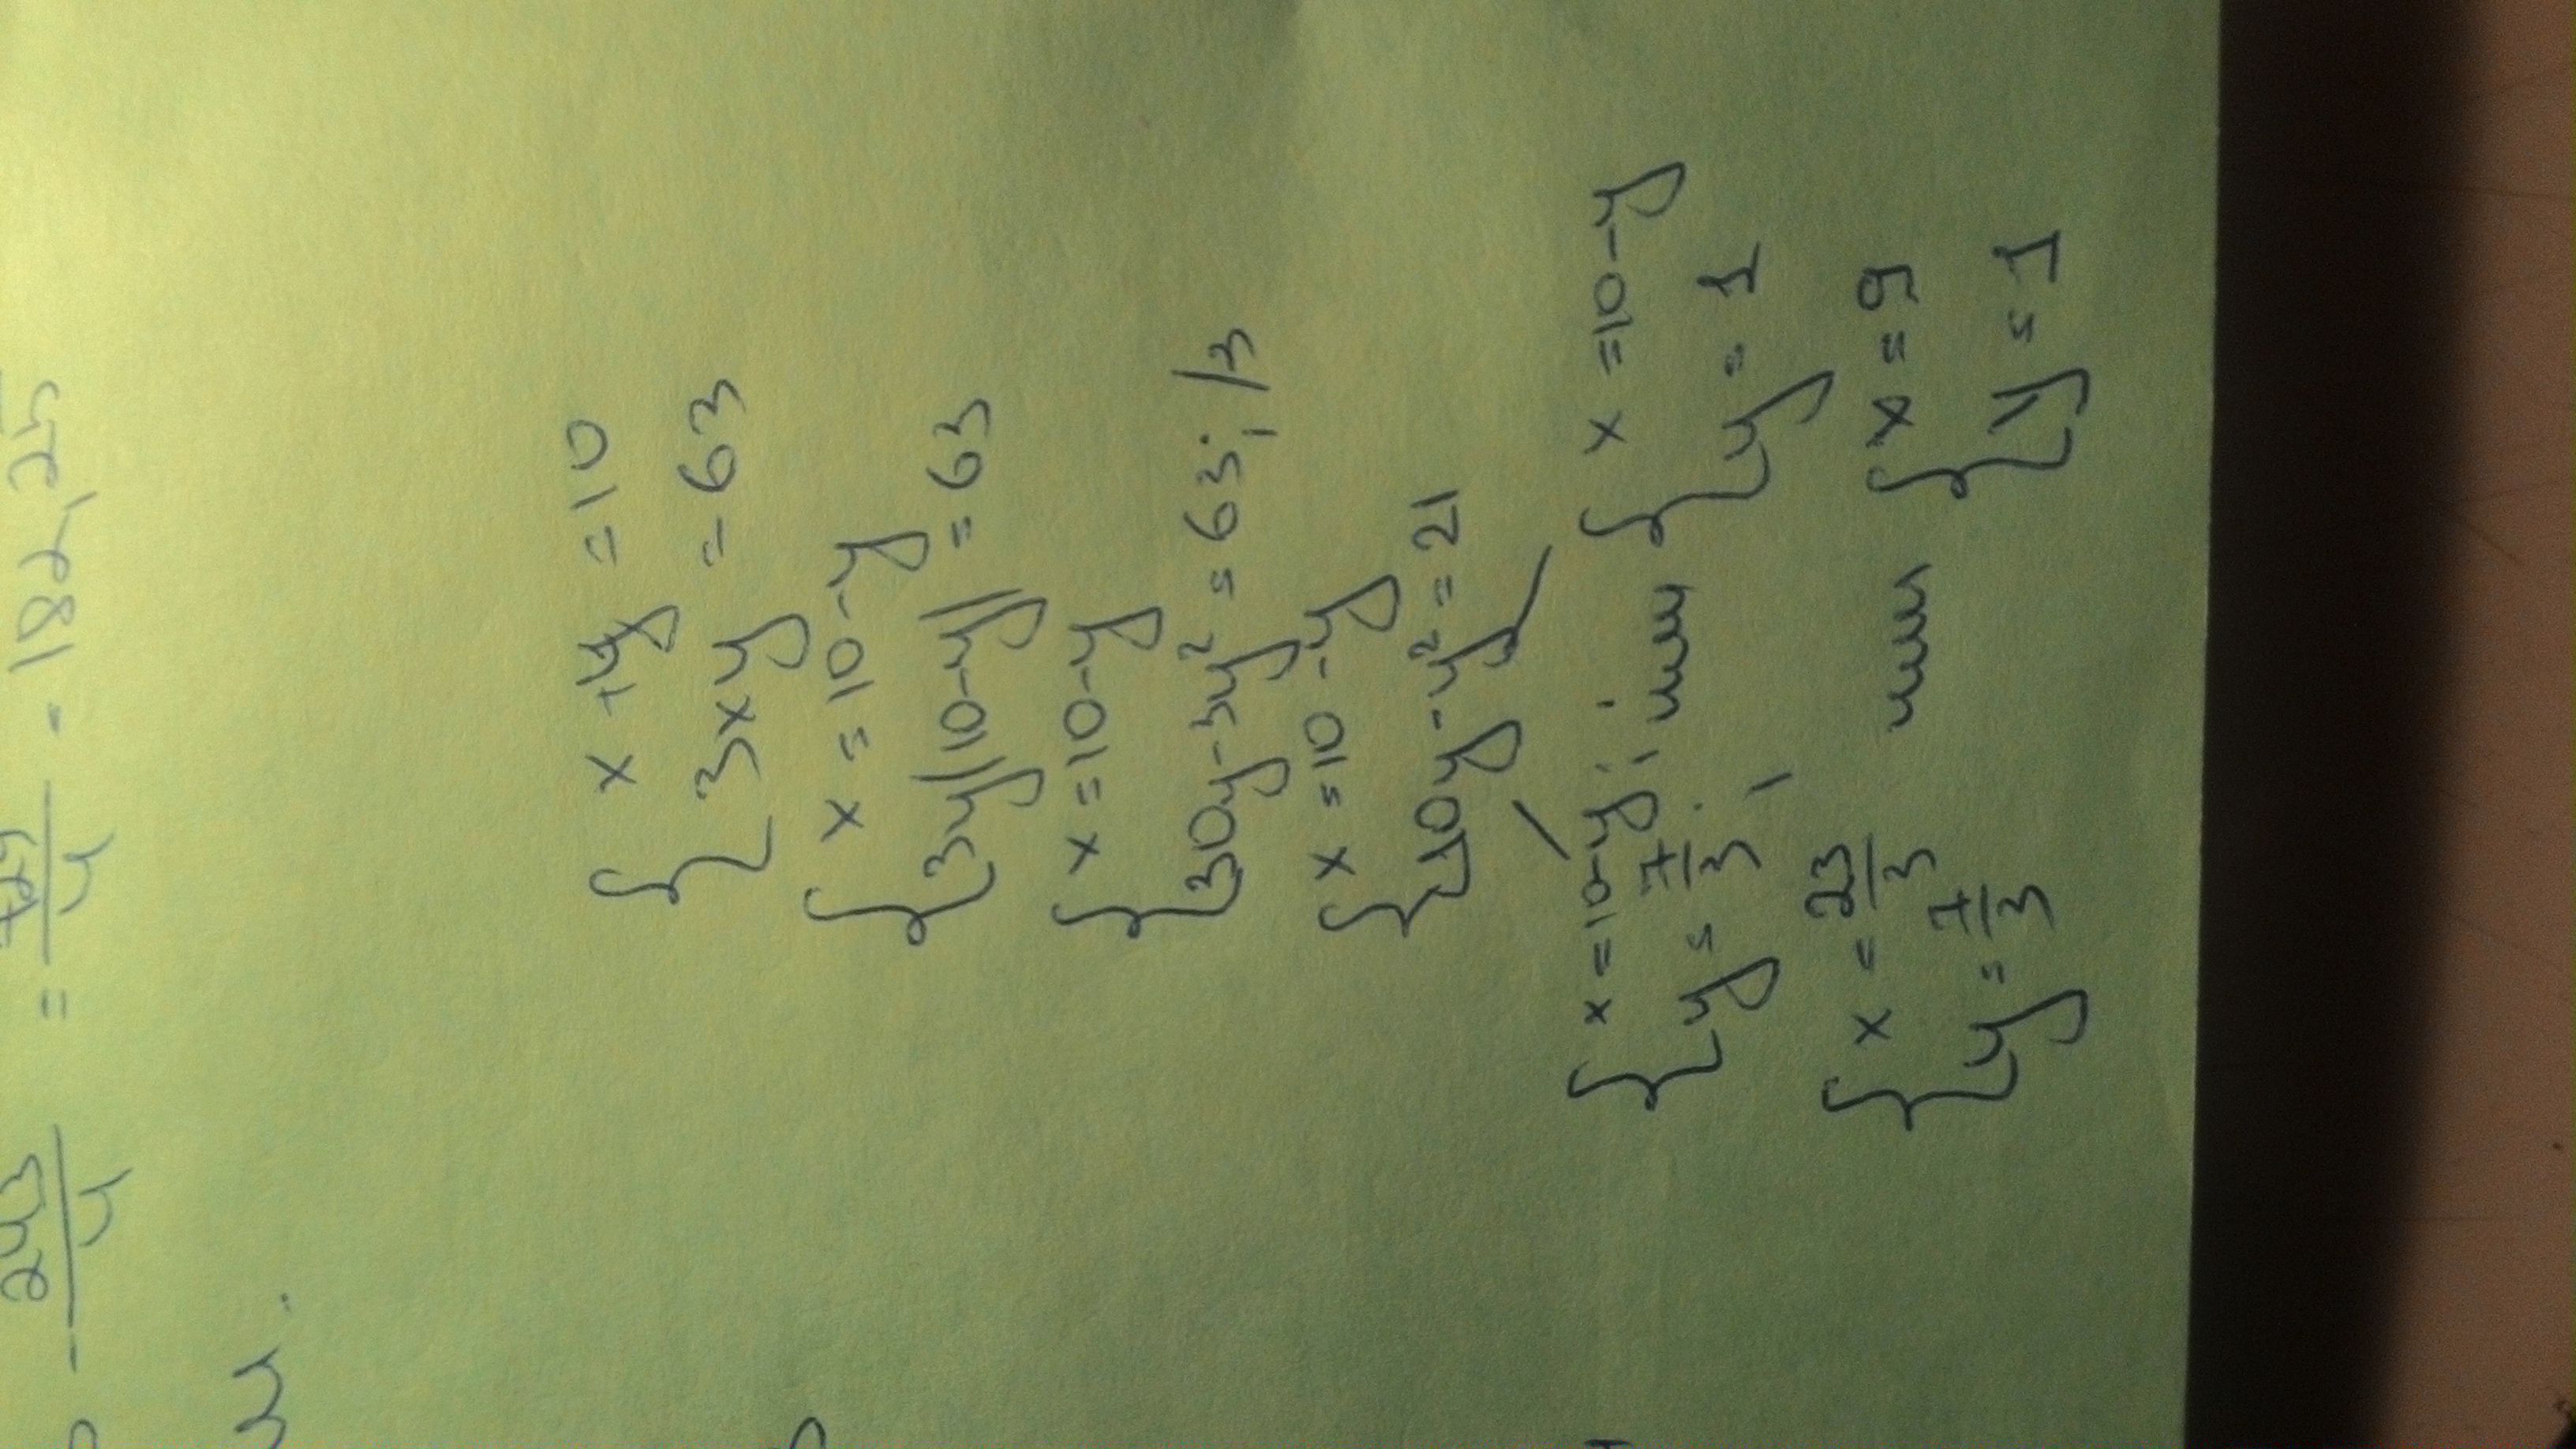 - 243/4 = 729/4 - 182,25
{ x + y = 10
3xy = 63
{ x = 10-y
3y(10-y) = 63
{ x = 10-y
30y-3y² = 63; /3
{ x = 10-y
10y-y² = 21
{ x = 10-y; или { x = 10-y
y = 7/3; y = 1
{ x = 23/3 или { x = 9
y = 7/3 y = 1